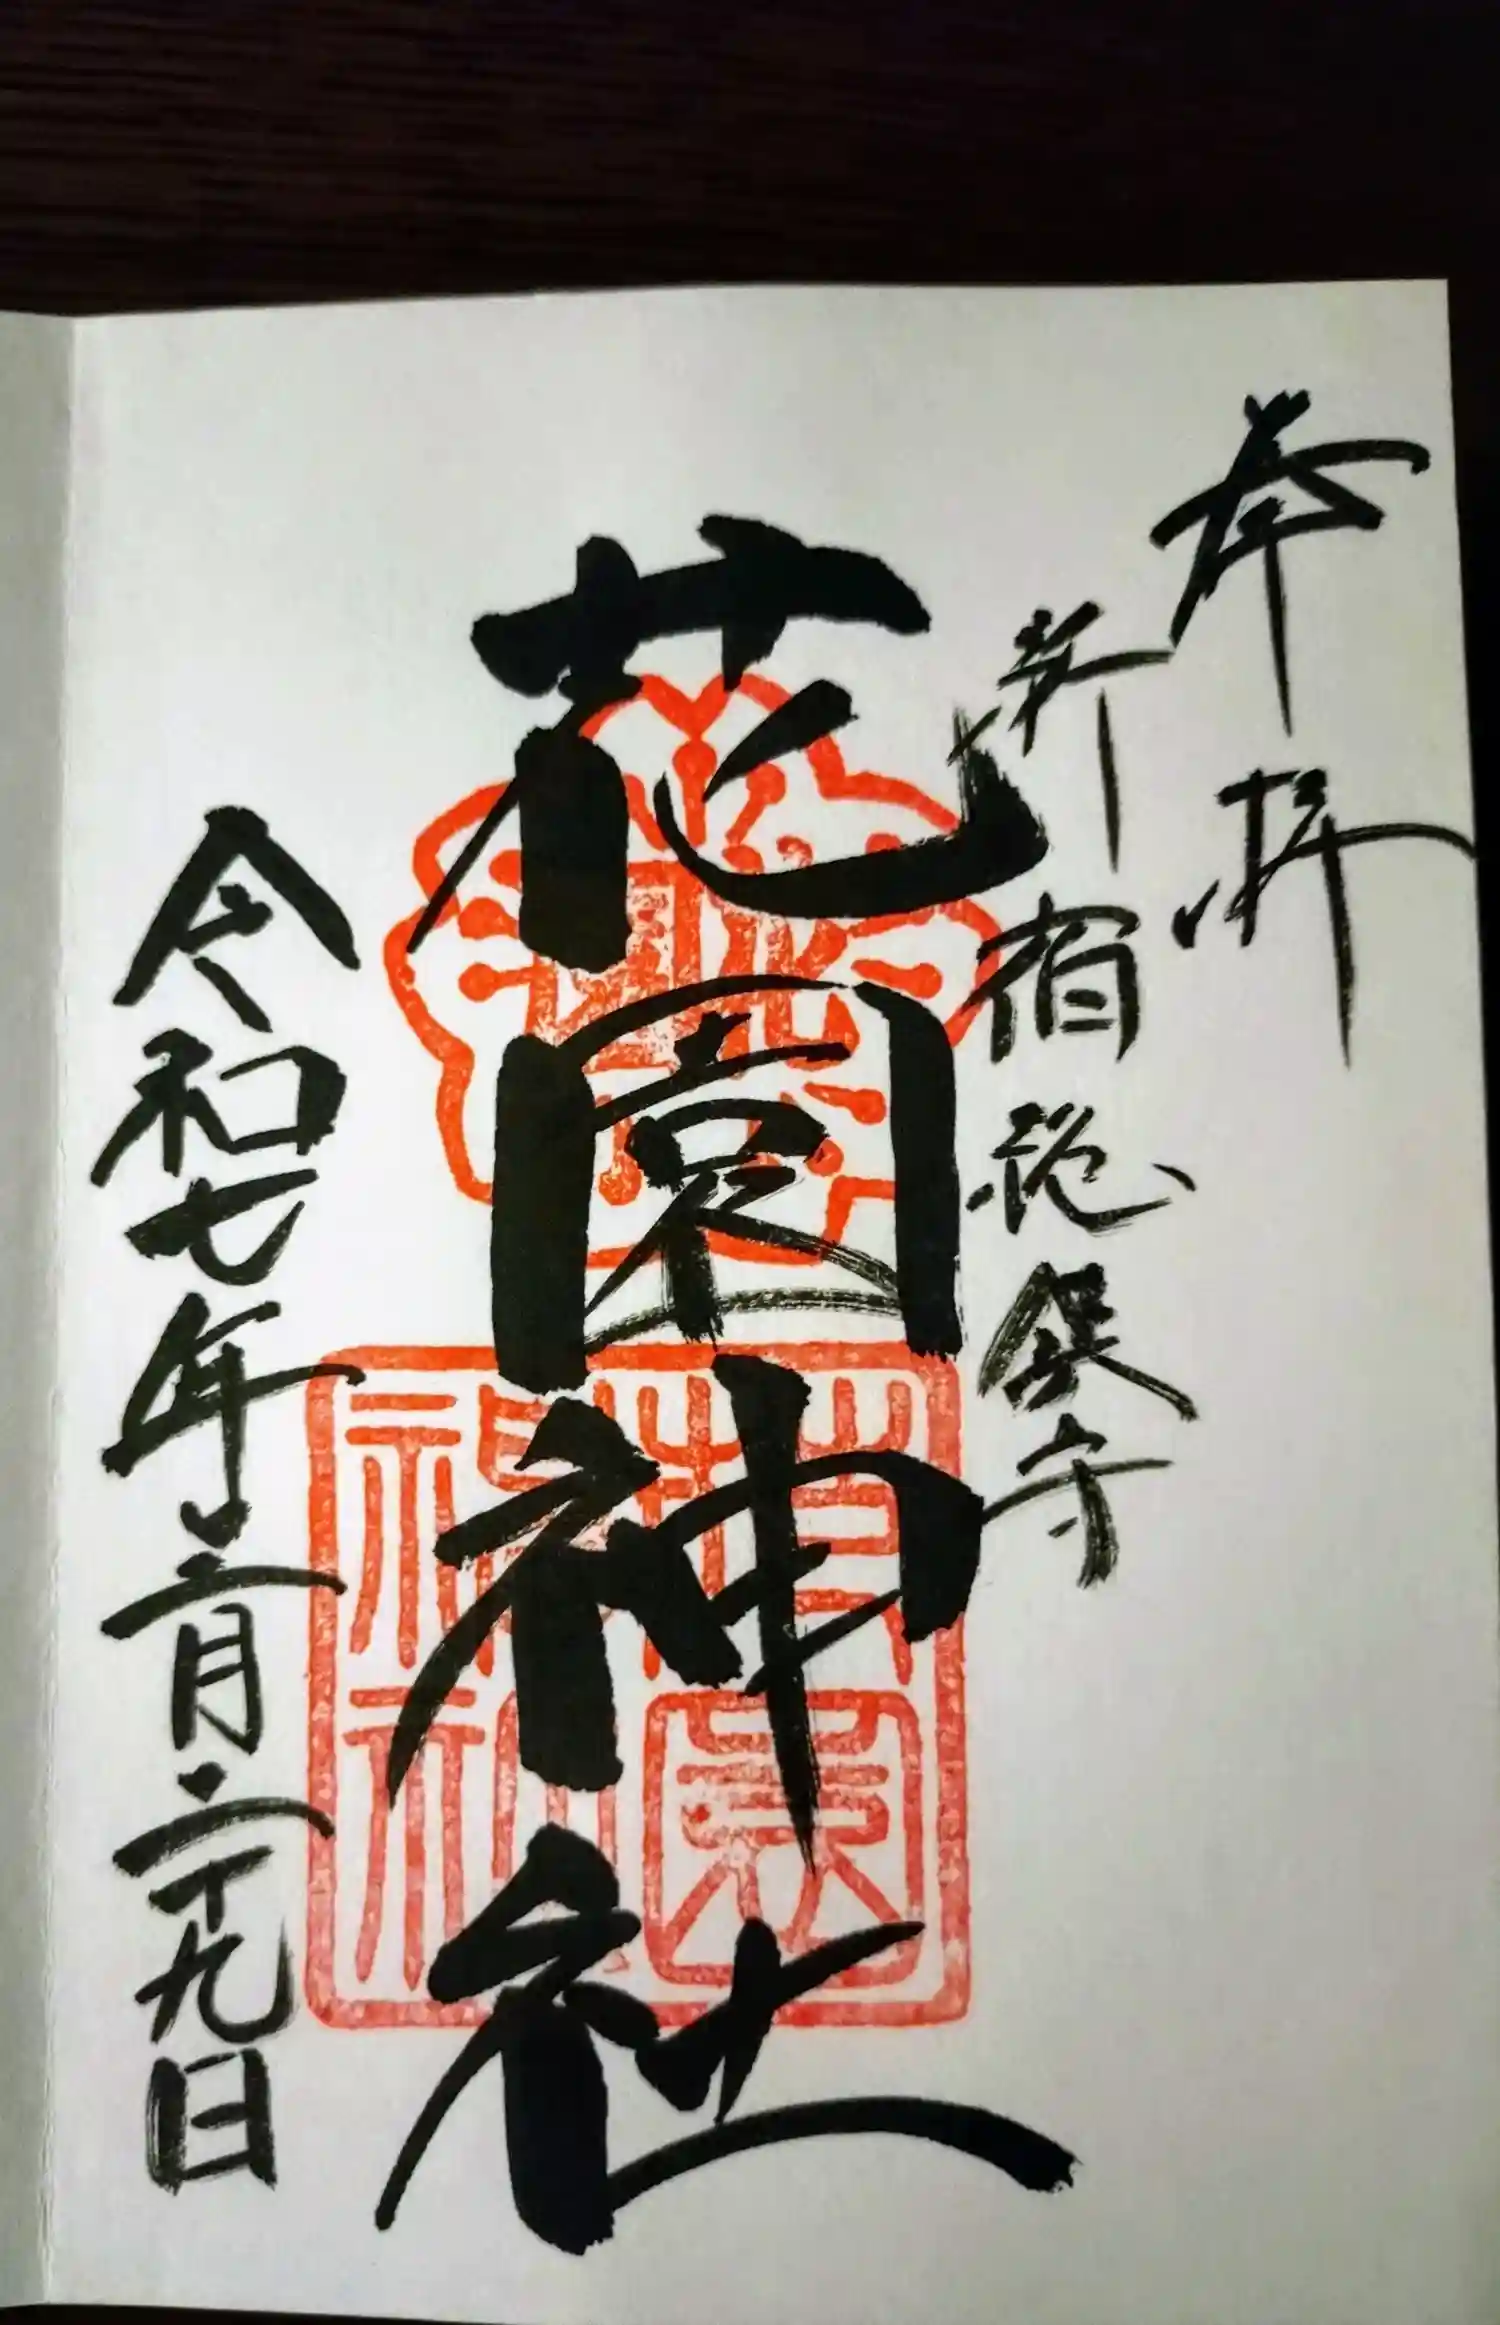 奉拝
新宿総鎮守
花園神社
令和七年三月二十九日
花園神社